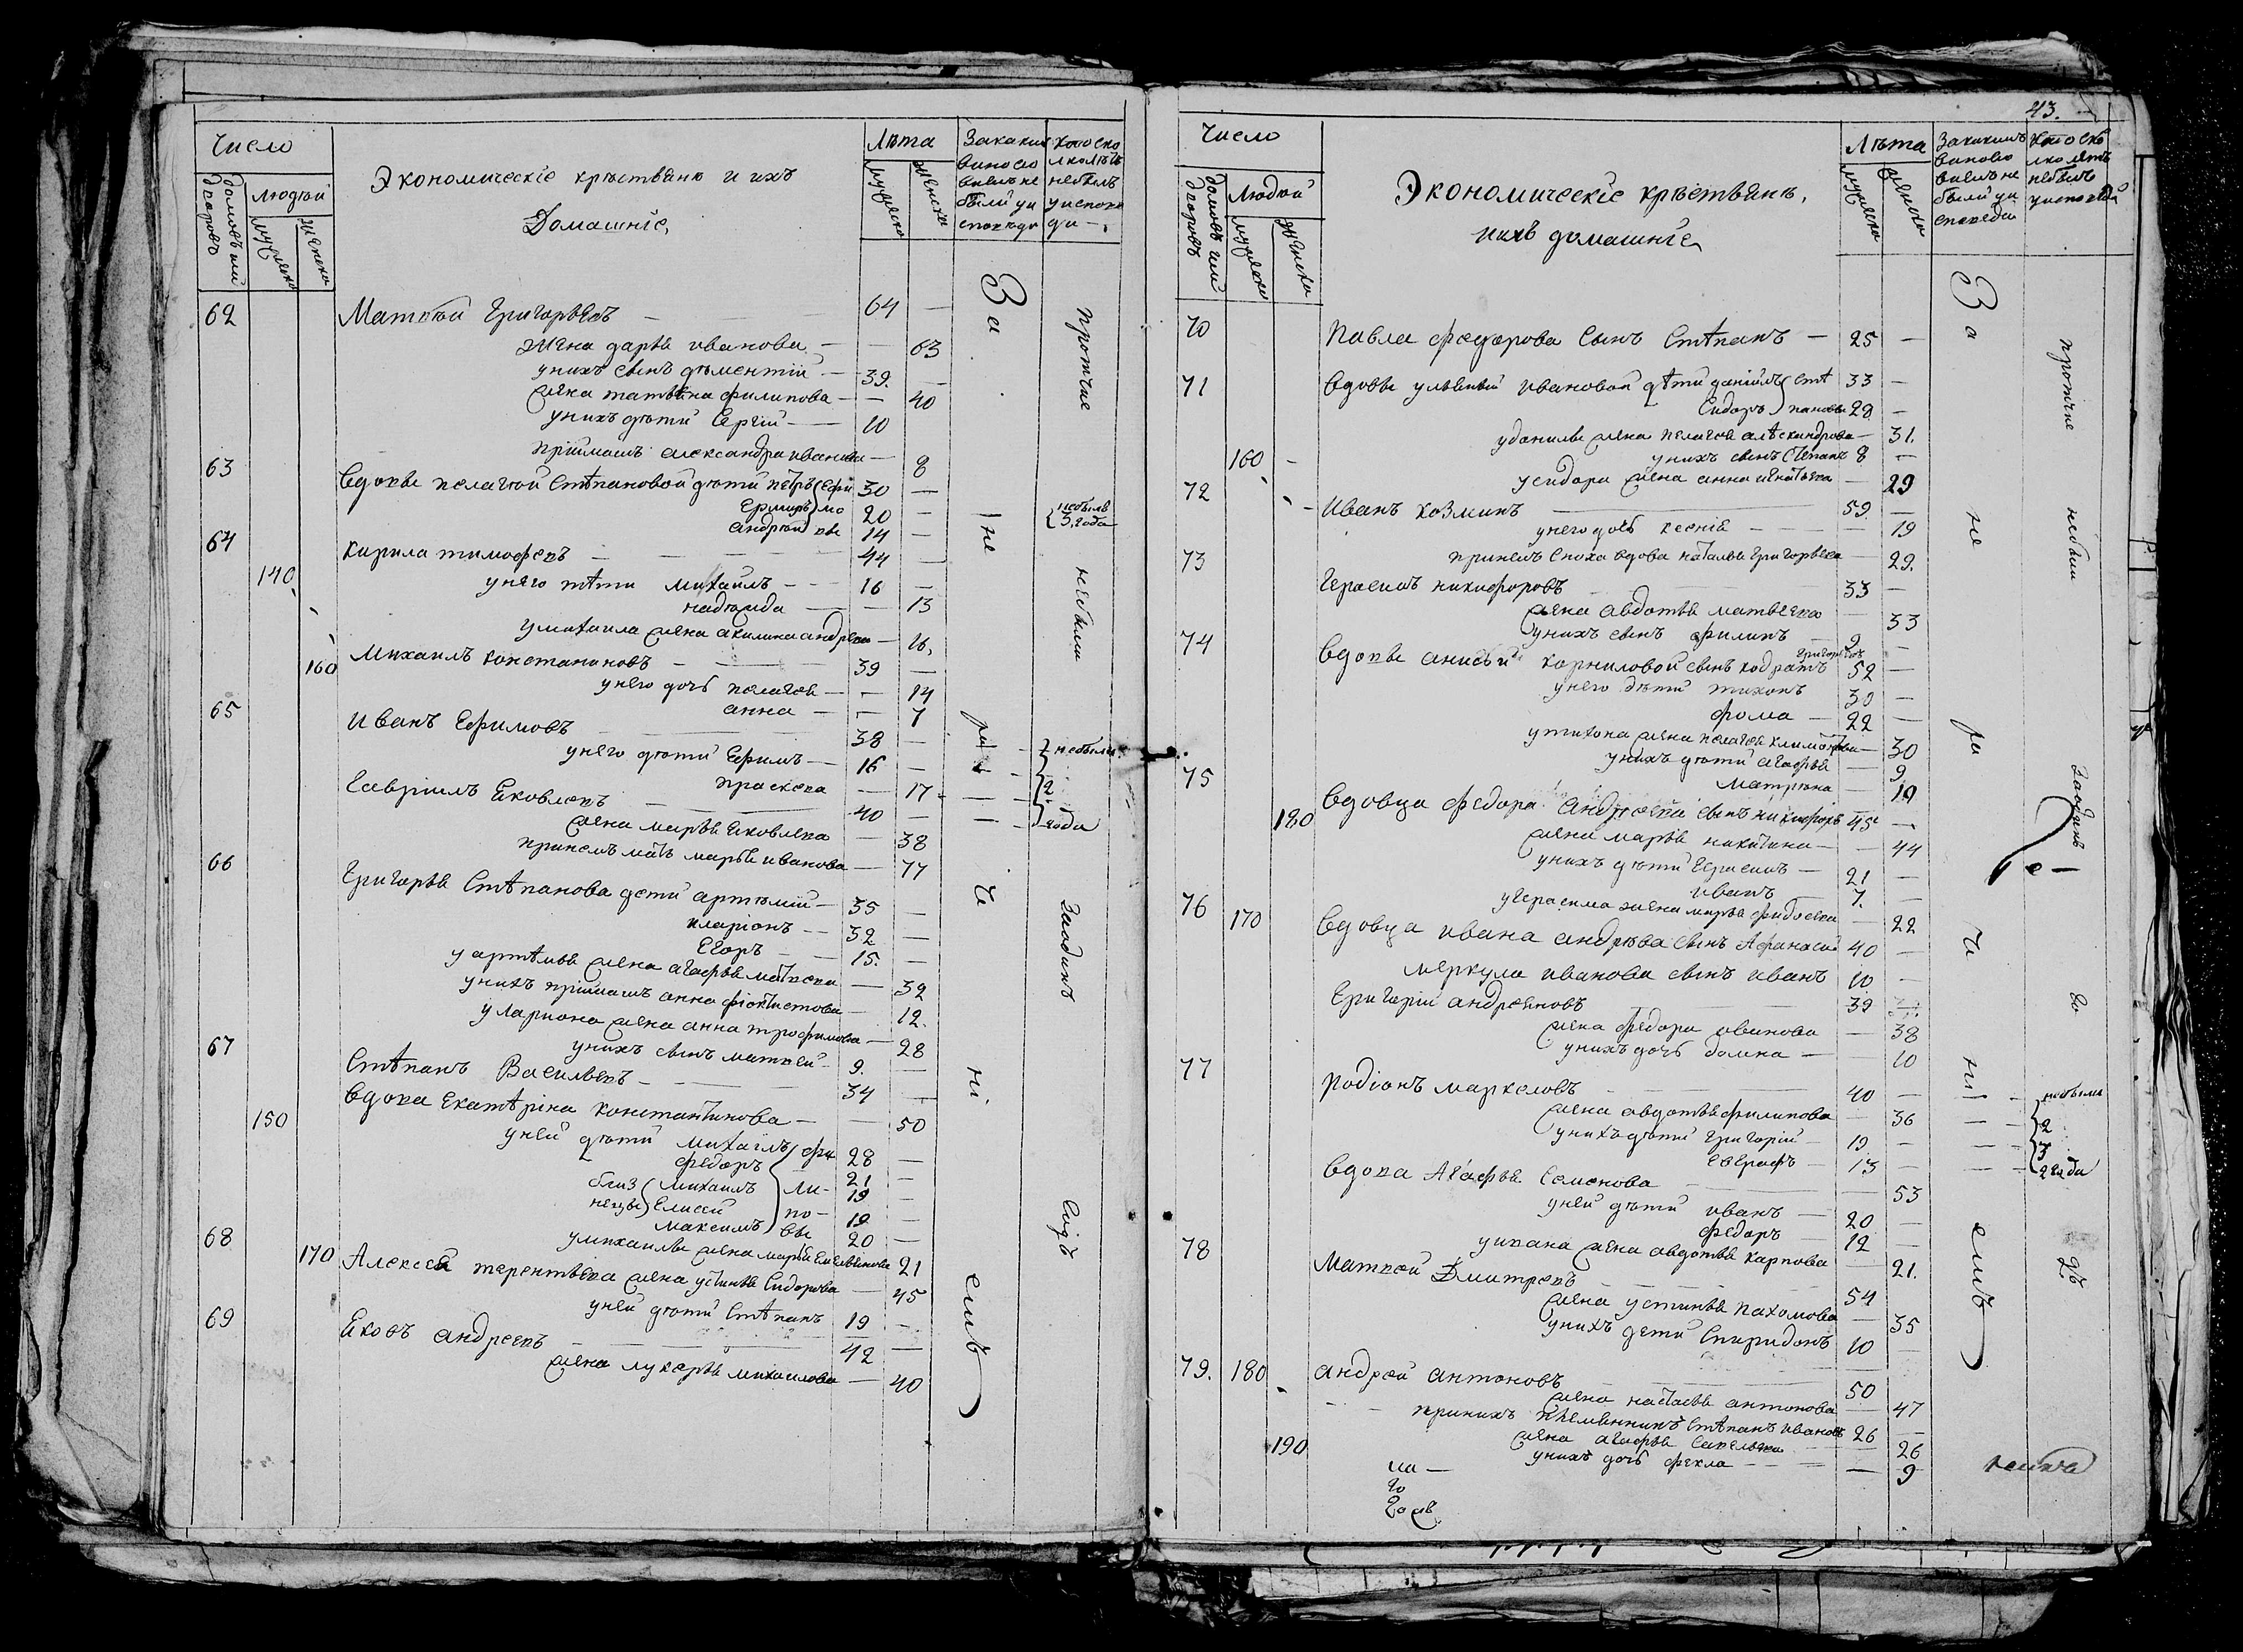 Число
Лѣта
Закакимъ
Хто ско
домовъ или дворовъ
людѣй
мужеска
женска
Экономическіе крѣстьянѣ и ихъ
Домашніе
мужеска
женска
виносло
виемъ не
были уи
сповѣди
лко лѣтъ
небылъ
уисповѣ
ди
62 Матвѣй Григорьевъ — 64 —
жена дарья иванова — — 63
унихъ сынъ дѣментій — 39. —
жена татьяна филипова — — 40
унихъ дѣти Сергій — 10
пріймашъ александра иванова — 8
63 Вдовы пелагѣи Стѣпановой дѣти пѣтръ ефи 30 —
Ермиръ мо 20 —
андрѣй вы 14 —
небылъ
3. года
64 Кирила тимофевъ — 44 —
140 унего тѣти михаилъ — 16 —
надѣжда — — 13
умихаила жена акилина андрѣва — 16,
160 Михаилъ констаниновъ — 39 —
унего дочь пелагея — — 14
анна — — 7
65 Иванъ Ефимовъ 38 —
небыли
унего дѣти Ефимъ — 16 —
праскева — 17 —
2
Гаврiилъ Яковлевъ — 40 —
года
жена марья яковлева — 38
принемъ мать марья иванова — 77
66 Григорья Стѣпанова дети артѣмiй — 35 —
иларiонъ — 32 —
Егоръ — 15. —
у артѣмья жена агафья матвева — 32
унихъ пріймашъ анна фіоктистова — 12.
у лариона жена анна трофимова — 28
унихъ сынъ матвей — 9. —
67 Стѣпанъ Васильевъ — 34 —
Вдова Екатѣріна константинова — — 50
150 уней дѣти михаилъ фи 28 —
федоръ 21 —
близ михаилъ ли- 19 —
нецы Елисей по- 19 —
максимъ вы 20 —
умихаилы жена марья емельянова 21
68 170 Алексея терентьева жена устинья Сидорова — 45
уней дѣти Стѣпанъ 19 —
69 Яковъ андреевъ 42 —
жена лукерья михаилова — 40
За не ра чи ні емъ
протчие небыли заодинъ Годъ
43.
Число
Лѣта
Закакимъ
Хто ско
домовъ или дворовъ
Людѣй
мужеска
женска
Экономическіе крѣстьянѣ,
иихъ домашніе
мужеска
женска
виново
виемъ не
были уи
споведи
лко лѣтъ
небылъ
уисповѣди
70 Павла федорова Сынъ Стѣпанъ — 25 —
71 Вдовы ульяныи ивановой дѣти данійлъ стѣ 33 —
Сидоръ пановы 28 —
уданилы жена пелагея алѣксандрова — 31.
160 унихъ сынъ Степанъ 8 —
усидора жена анна игнатьева — 29
72 Иванъ козминъ 59. —
унего дочь ксенія — — 19
принемъ сноха вдова наталья григорьева — 29.
73 Герасимъ никифоровъ 33 —
жена авдотья матвеева — 33
унихъ сынъ филипъ — 9 —
74 Вдовы анисьи корниловой сынъ кодратъ григорьевъ 52 —
унего дѣти тихонъ 30 —
фома — 22 —
утихона жена пелагея климонтова — 30
унихъ дѣти агафья — 9
матрѣна — 10
75 180 Вдовца федора андреева сынъ никифоръ 45 —
жена марья никитина — — 44
унихъ дѣти Герасимъ — 21 —
иванъ — 7. —
угерасима жена марья федосеева — 22
76 170 Вдовца ивана андрѣва сынъ Афанасий 40 —
меркула иванова сынъ иванъ 10 —
Григорiй андреяновъ 39
жена федора иванова — 38
унихъ дочь домна — 10
77 Родіонъ маркеловъ 40 —
небыли
жена авдотья филипова — 36
2
унихъ дѣти григорій — 19 —
3
евграфъ — 13 —
года
Вдова Агафья Семенова 53
уней дѣти иванъ — 20 —
федоръ — 12 —
уивана жена авдотья карпова — 21.
78 Матвей Дмитревъ 54 —
жена устинья пахомова — 35
унихъ дети Спиридонъ 10 —
79. 180 андрей антоновъ 50 —
жена настасья антонова — 47
принихъ племянникъ Стѣпанъ ивановъ 26 —
жена агафья савельева — 26
190 унихъ дочь фекла — — 9
За не ра чи ні емъ
протчие небыли заодинъ го дъ